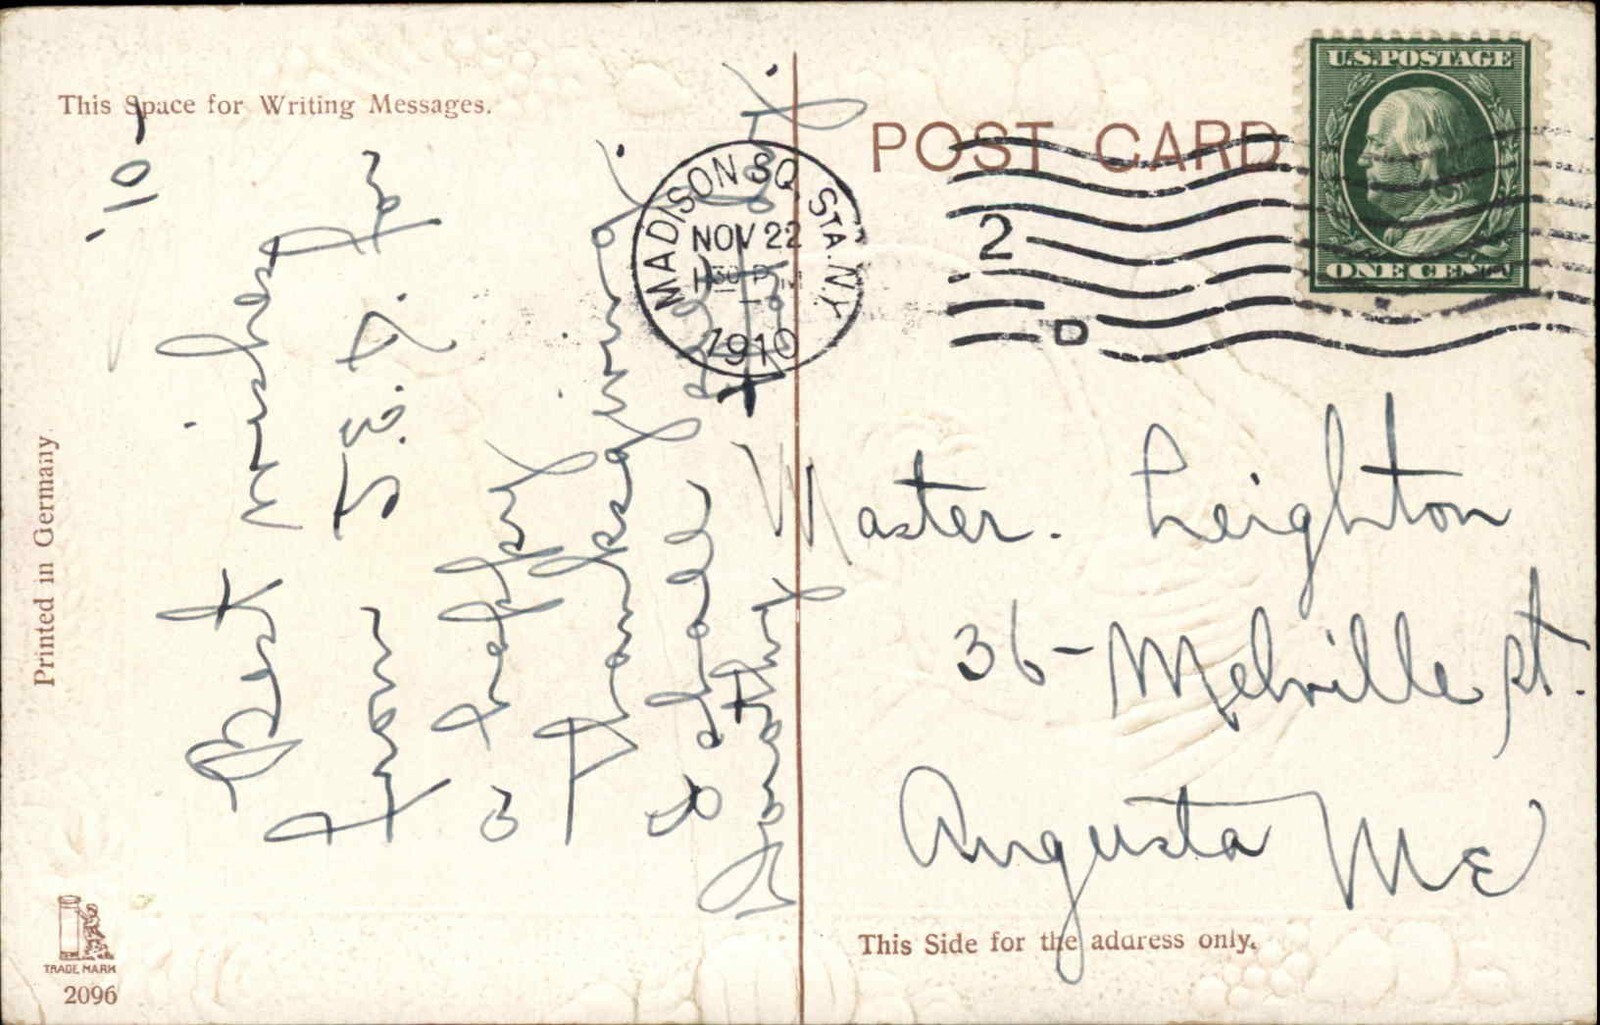 This Space for Writing Messages.
'10-
Best wishes for
from S.E.D.
a happy
Thanksgiving.
to all
Dorothy
Printed in Germany
TRADE MARK
2096
POST CARD
U.S.POSTAGE
ONE CENT
MADISON SQ. STA. N.Y.
NOV 22
1910
2
D
Master. Leighton
36- Melville st.
Augusta Me
This Side for the address only.